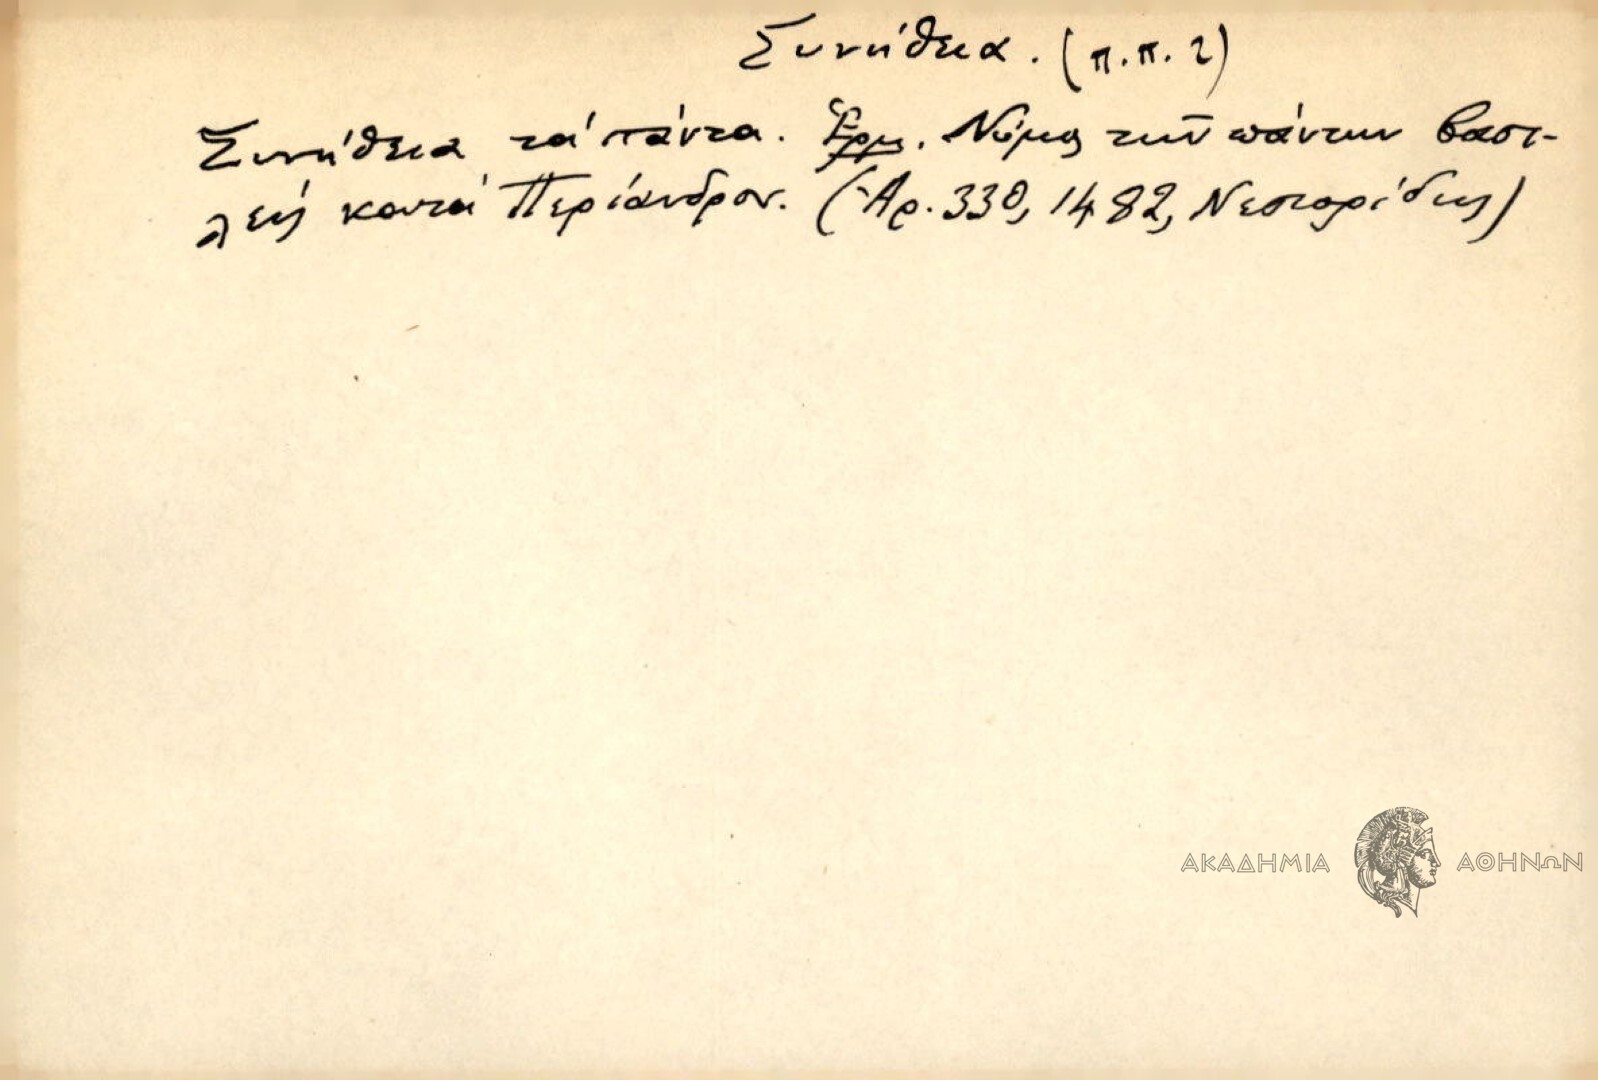 Συνήθεια. (π.π. 2)
Συνήθεια τά πάντα. Ἑρμ. Νόμος τῶν πάντων βασι-
λεύς κατά Περίανδρον. (Ἀρ. 330, 1482, Νεστορίδης)
ΑΚΑΔΗΜΙΑ ΑΘΗΝΩΝ